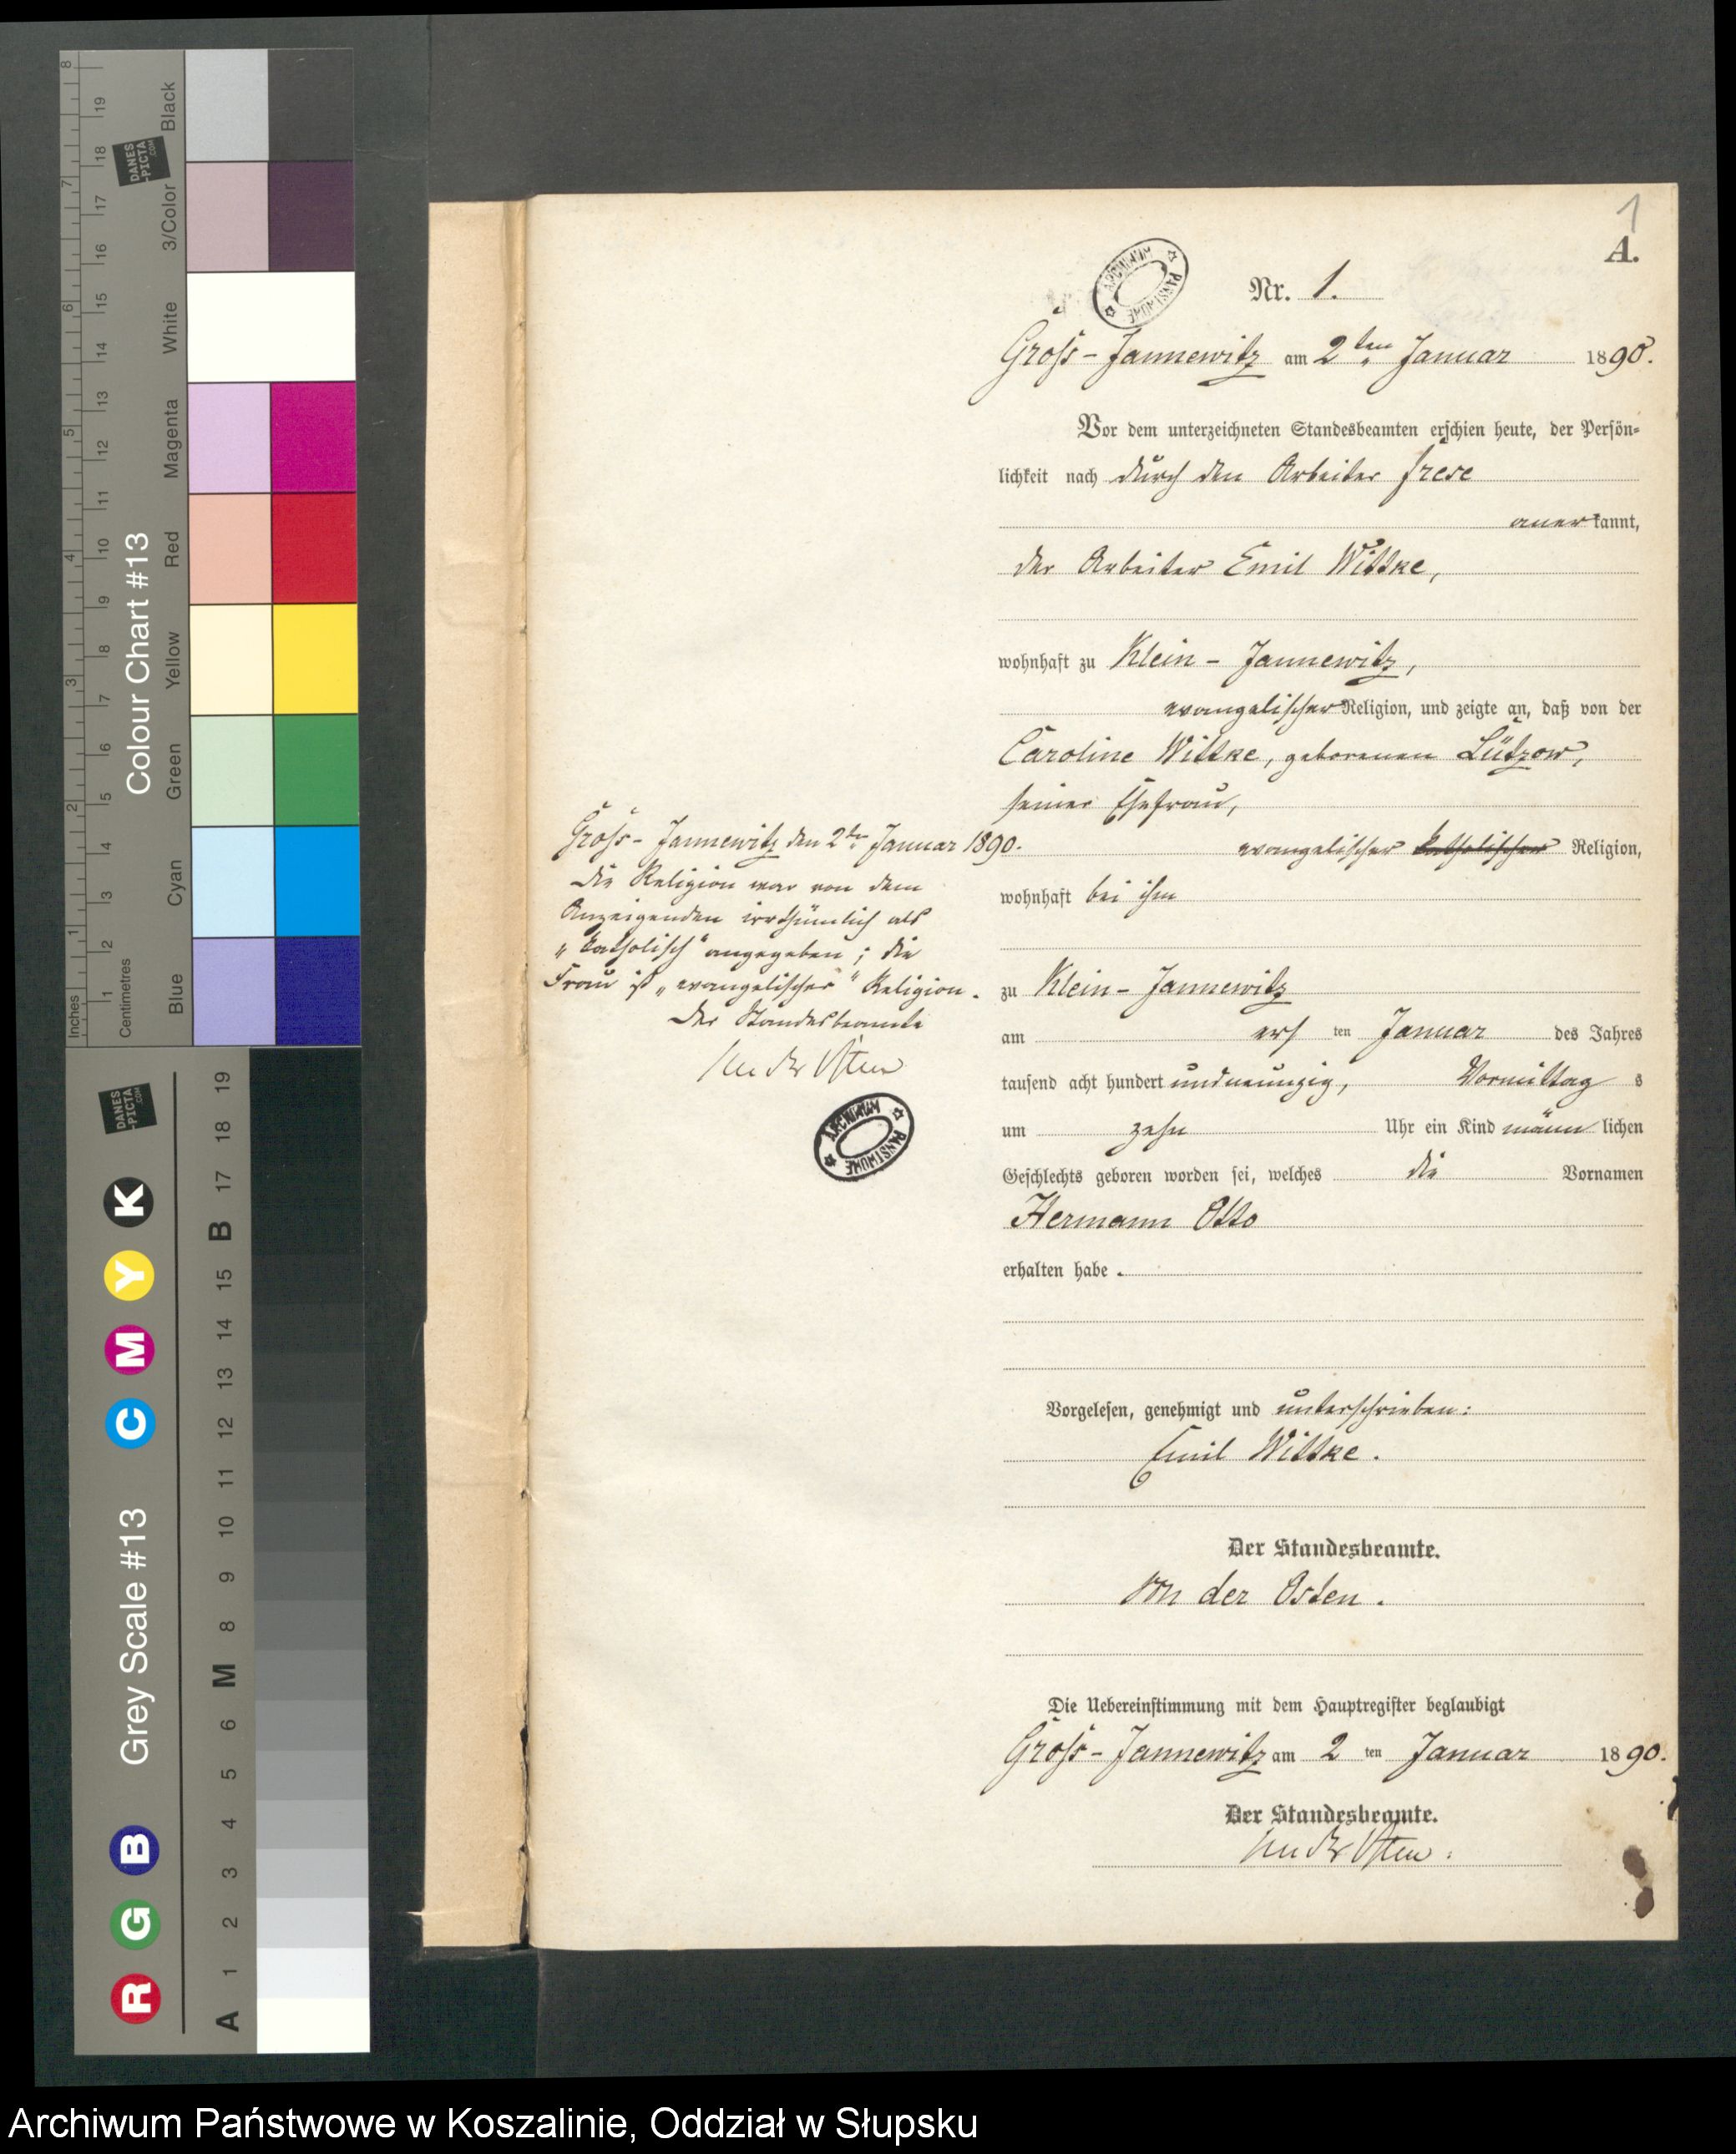 1
A.
ARCHIWUM PAŃSTWOWE
Nr. 1.
Gross-Jannewitz am 2ten Januar 1890.
Vor dem unterzeichneten Standesbeamten erschien heute, der Persön-
lichkeit nach durch den Arbeiter Frese
anerkannt,
der Arbeiter Emil Wittke,
wohnhaft zu Klein-Jannewitz,
evangelischer Religion, und zeigte an, daß von der
Caroline Wittke, geborenen Lützow,
seiner Ehefrau,
evangelischer katholischer Religion,
wohnhaft bei ihm
zu Klein-Jannewitz
am ersten Januar des Jahres
tausend acht hundert undneunzig, Vormittags
um zehn Uhr ein Kind männlichen
Geschlechts geboren worden sei, welches die Vornamen
Hermann Otto
erhalten habe.
Vorgelesen, genehmigt und unterschrieben:
Emil Wittke.
Der Standesbeamte.
von der Osten.
Die Uebereinstimmung mit dem Hauptregister beglaubigt
Gross-Jannewitz am 2ten Januar 1890.
Der Standesbeamte.
von der Osten.
Gross-Jannewitz den 2ten Januar 1890.
Die Religion war von dem
Anzeigenden irrthümlich als
„katholisch“ angegeben; die
Frau ist „evangelischer“ Religion.
Der Standesbeamte
von der Osten
ARCHIWUM PAŃSTWOWE
Colour Chart #13
Blue Cyan Green Yellow Red Magenta White 3/Color Black
Inches 1 2 3 4 5 6 7 8
Centimetres 1 2 3 4 5 6 7 8 9 10 11 12 13 14 15 16 17 18 19
DANES-PICTA.COM
Grey Scale #13
R G B C M Y K
A 1 2 3 4 5 6 M 8 9 10 11 12 13 14 15 B 17 18 19
DANES-PICTA.COM
Archiwum Państwowe w Koszalinie, Oddział w Słupsku